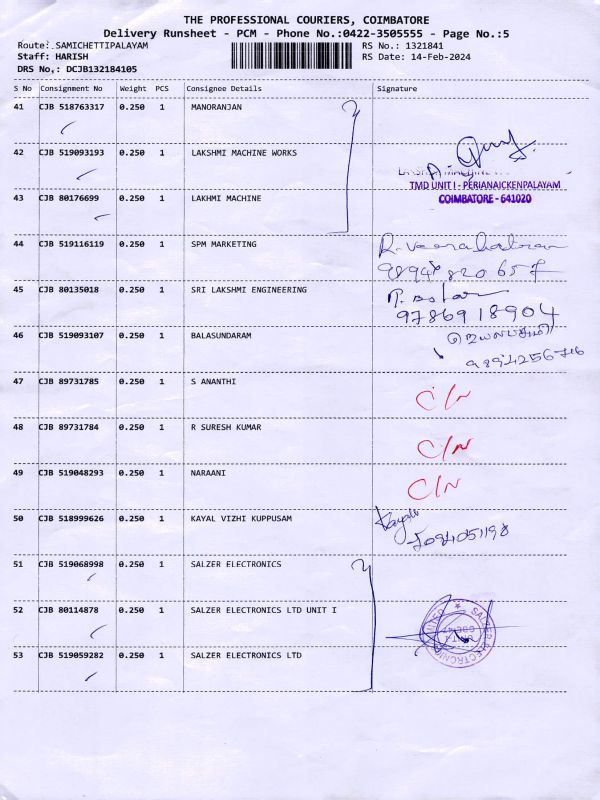 THE PROFESSIONAL COURIERS, COIMBATORE
Delivery Runsheet - PCM - Phone No.:0422-3505555 - Page No.:5
Route: SAMICHETTIPALAYAM RS No.: 1321841
Staff: HARISH RS Date: 14-Feb-2024
DRS No.: DCJB132184105
S No Consignment No Weight PCS Consignee Details Signature
41 CJB 518763317 0.250 1 MANORANJAN
42 CJB 519093193 0.250 1 LAKSHMI MACHINE WORKS
TMD UNIT I - PERIANAICKENPALAYAM
43 CJB 80176699 0.250 1 LAKHMI MACHINE COIMBATORE - 641020
44 CJB 519116119 0.250 1 SPM MARKETING
45 CJB 80135018 0.250 1 SRI LAKSHMI ENGINEERING
9786918904
46 CJB 519093107 0.250 1 BALASUNDARAM
9894256716
47 CJB 89731785 0.250 1 S ANANTHI
C/N
48 CJB 89731784 0.250 1 R SURESH KUMAR
C/N
49 CJB 519048293 0.250 1 NARAANI
C/N
50 CJB 518999626 0.250 1 KAYAL VIZHI KUPPUSAM
51 CJB 519068998 0.250 1 SALZER ELECTRONICS
52 CJB 80114878 0.250 1 SALZER ELECTRONICS LTD UNIT I
SALZER ELECTRONICS
53 CJB 519059282 0.250 1 SALZER ELECTRONICS LTD